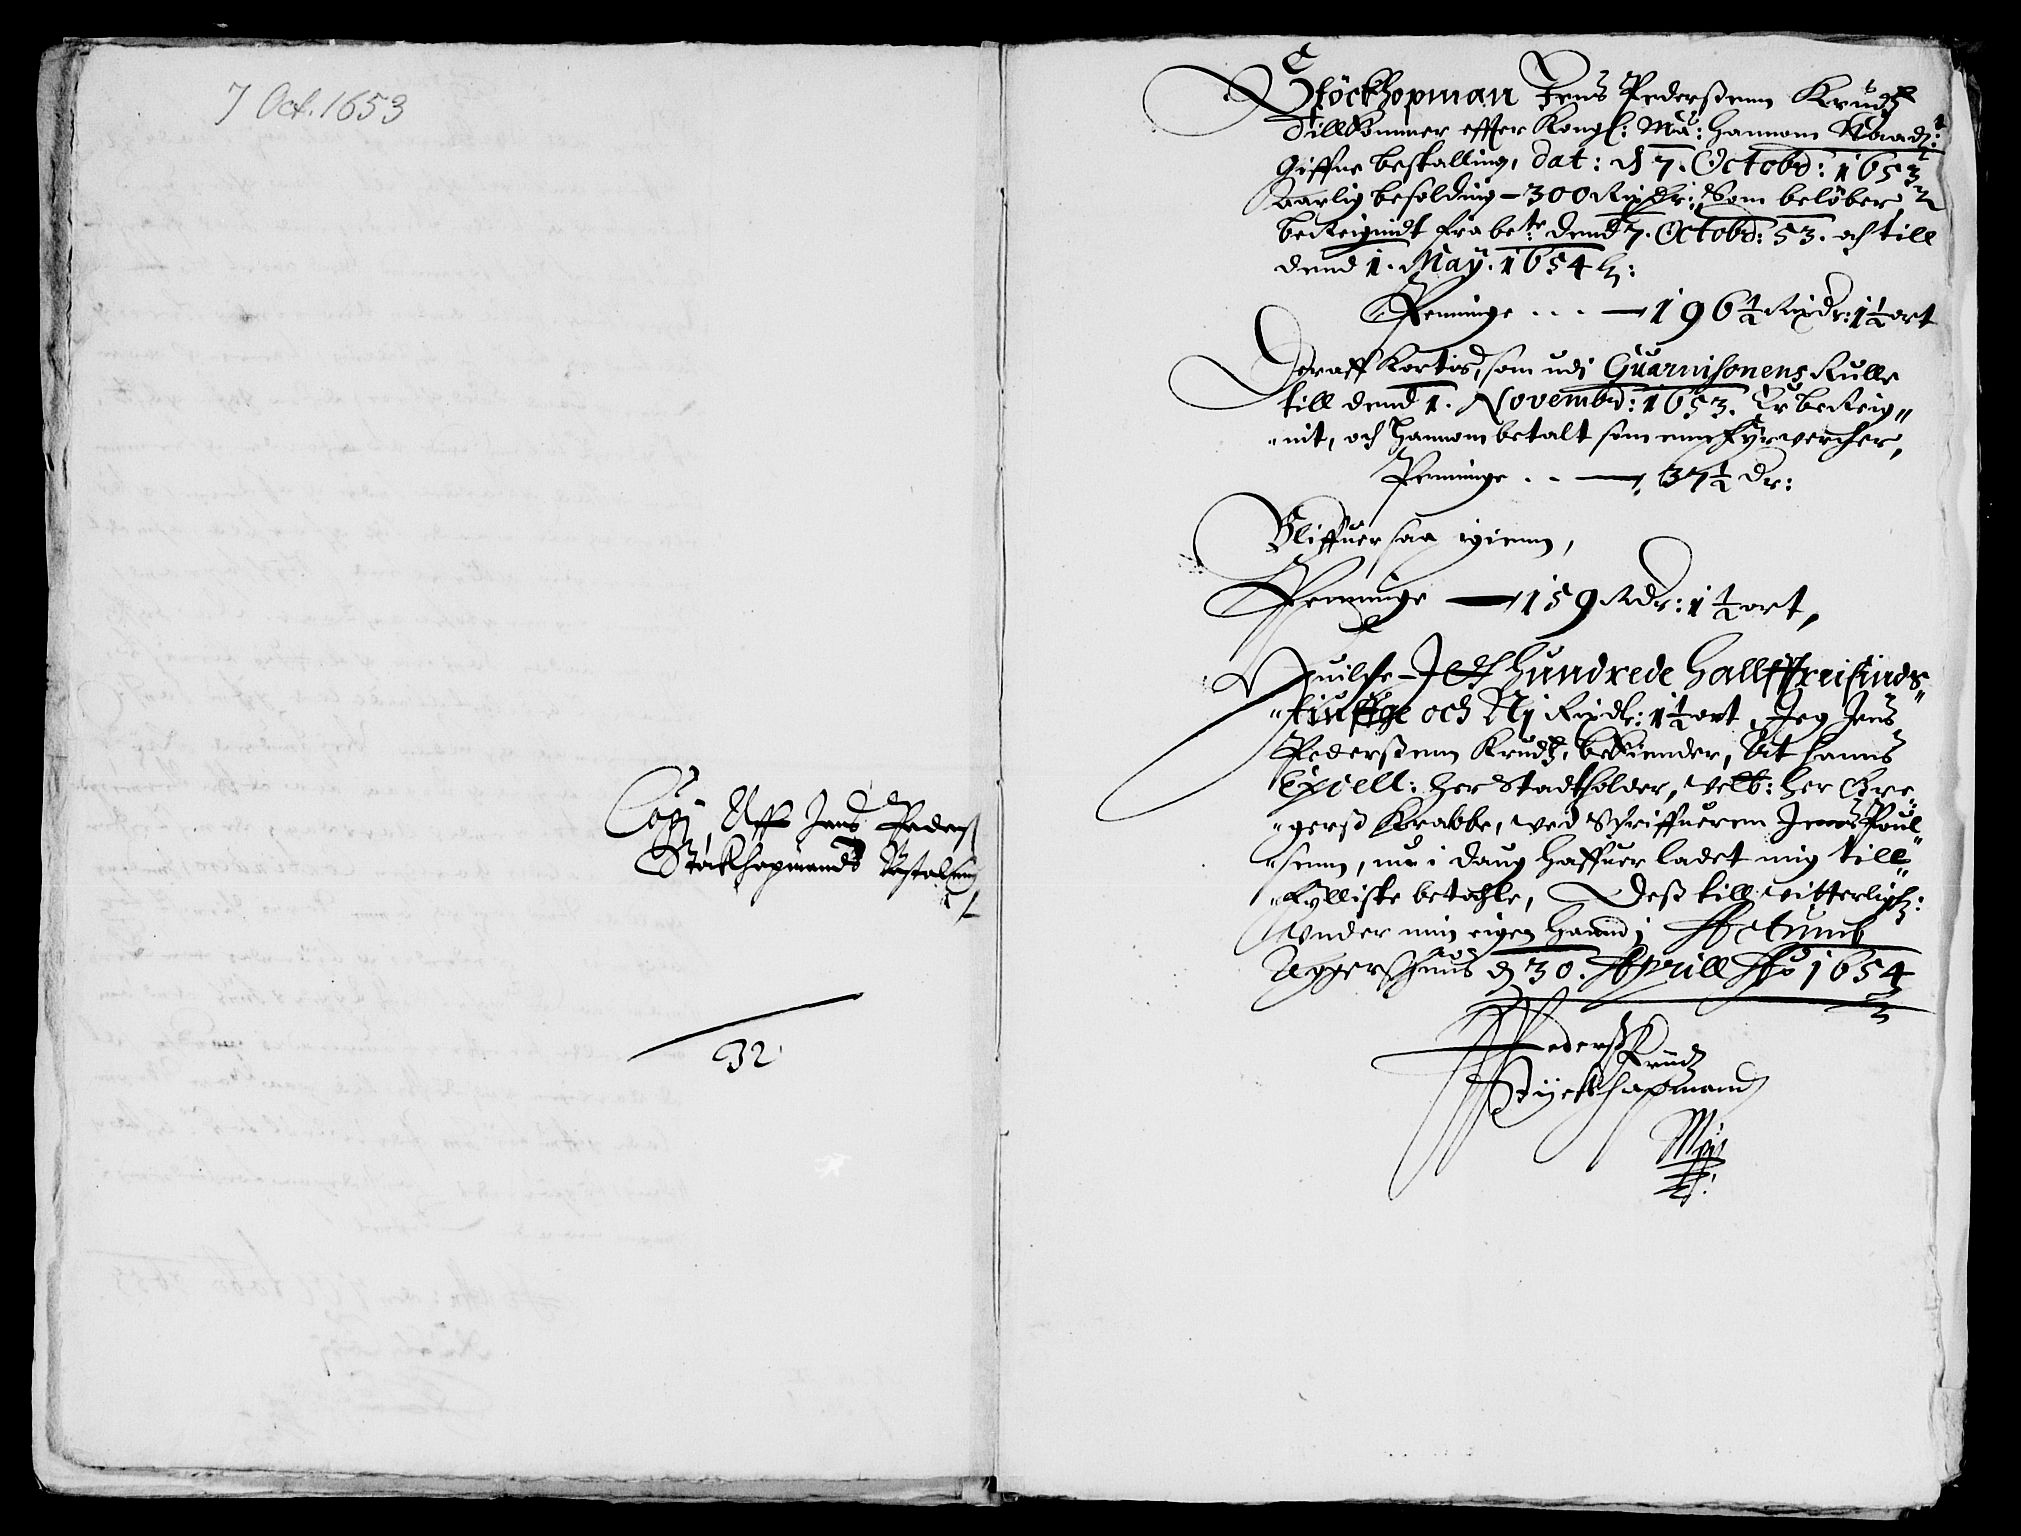 7 Oct. 1653
Copj, Aff Jens Peders
Støckhopmands Bestalling
32
Støckhopman Jens Pederßenn Krudtz
Tillkommer effter Kongl: Ma: hannom Naadt:
Giffne bestalling, dat: d 7. Octobr: 1653
Aarlig besolding - 300 Rixdr: Som beløber
bereignidt fra bete dend 7. Octobr: 53. och till
dend 1. May. 1654
Penninge . . . — 196½ Rixdr: 1½ ort
Deraff Kortis, som udj Guarnisonens Rulle
till dend 1. Novembr: 1653. Er bereig„
„nit, och hannom betalt som enn fyrvercher,
Penninge . . — 37½ dr:
Bliffuer saa igienn,
Penninge — 159 Rdr: 1½ ort,
Huilche - Jet hundrede hallfftreisinds„
„tiuffge och Nj Rixdr: 1½ ort, Jeg Jens
Pederßenn Krudtz, bekiender, At hanns
Excell: her Stadtholder, Velb: her Gre„
„gerß Krabbe, ved Schriffueren Jens Poul„
„senn, nu i daug haffuer ladet mig till„
„fylliste betahle, Deß till vitterlighz:
Vnder min eigen haand, Actumb
Aggershuus d 30. Aprill Ao 1654
Pederß Krudtz
Styckhapmand
Mpp